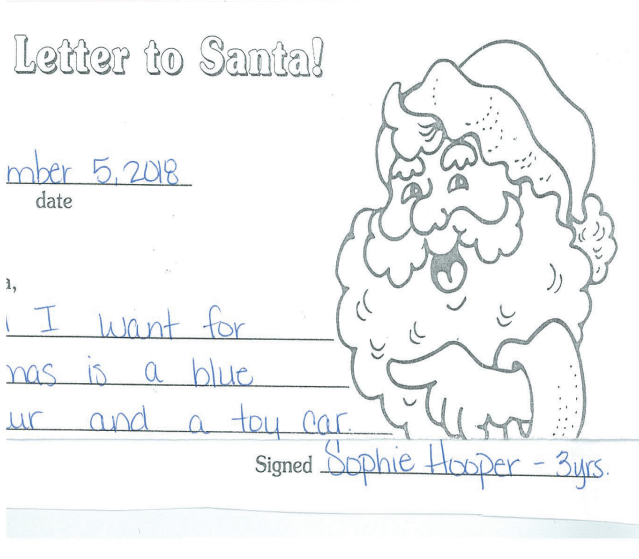 Letter to Santa!
mber 5, 2018
date
a,
I want for
mas is a blue
ur and a toy car.
Signed Sophie Hooper - 3yrs.